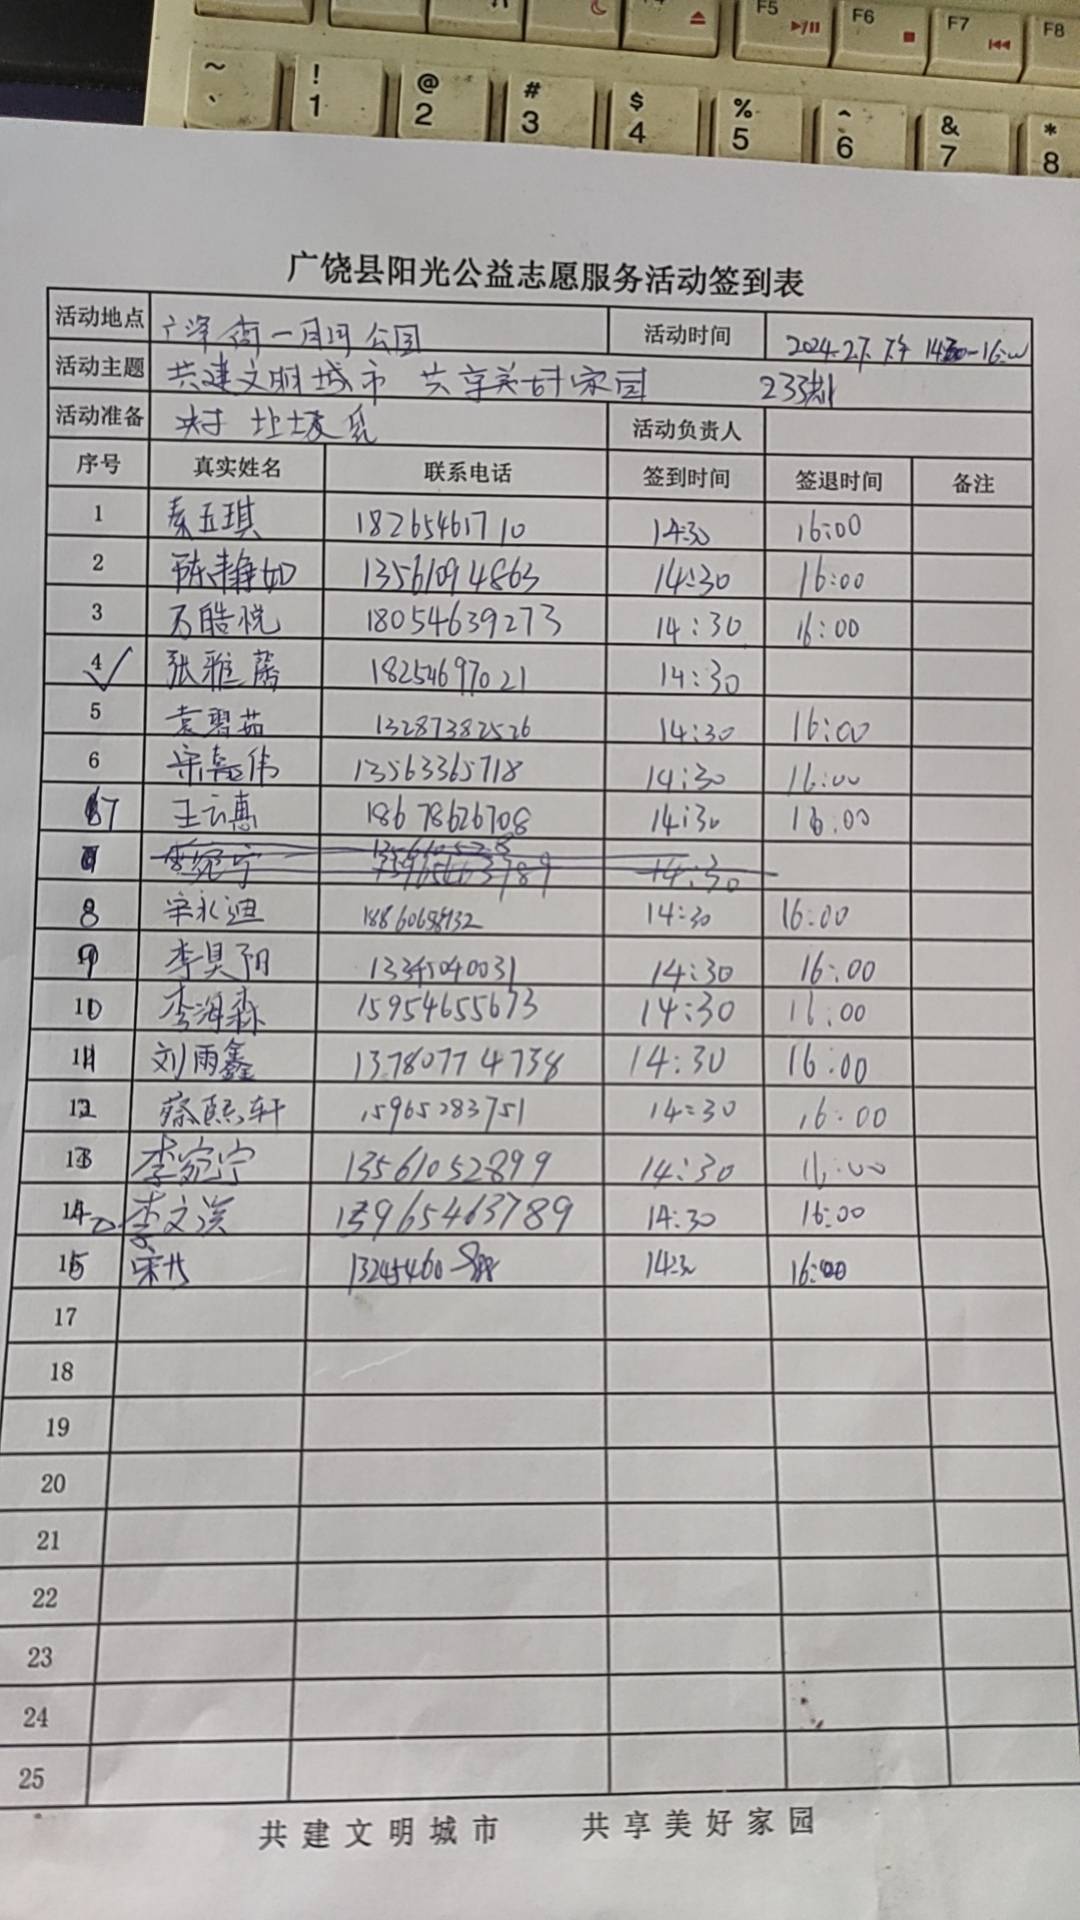 F5 F6 F7 F8
~ ! @ # $ % ^ & *
` 1 2 3 4 5 6 7 8
广饶县阳光公益志愿服务活动签到表
活动地点 广泽街一月河公园 活动时间 2024.2.7. 下午 14:30-16:00
活动主题 共建文明城市 共享美好家园 233
活动准备 垃圾 活动负责人
序号 真实姓名 联系电话 签到时间 签退时间 备注
1 秦五琪 18265461710 14:30 16:00
2 陈静如 13561094863 14:30 16:00
3 万皓悦 18054639273 14:30 16:00
4 ✓ 张雅茜 18254697021 14:30
5 袁碧茹 13287382526 14:30 16:00
6 宋伟 13563365718 14:30 16:00
7 王云惠 18678626708 14:30 16:00
李宛宁 15965463789 14:30
8 宋永迪 18860658932 14:30 16:00
9 李昊阳 13345040031 14:30 16:00
10 李海森 15954655673 14:30 16:00
11 刘雨鑫 13780774738 14:30 16:00
12 蔡熙轩 15965283751 14:30 16:00
13 李宛宁 13561052899 14:30 16:00
14 李文淏 15965463789 14:30 16:00
15 宋 14:30 16:00
17
18
19
20
21
22
23
24
25
共建文明城市 共享美好家园